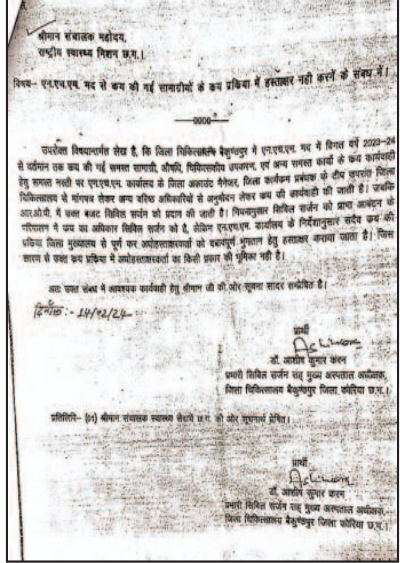 श्रीमान संचालक महोदय,
राष्ट्रीय स्वास्थ्य मिशन छ.ग.।
विषय– एन.एच.एम. मद से क्रय की गई सामाग्रीयों के क्रय प्रक्रिया में हस्ताक्षर नहीं करने के संबंध में।
—0000—
उपरोक्त विषयान्तर्गत लेख है, कि जिला चिकित्सालय बैकुण्ठपुर में एन.एच.एम. मद में विगत वर्ष 2023–24
से वर्तमान तक क्रय की गई समस्त सामाग्री, औषधि, चिकित्सकीय उपकरण, एवं अन्य समस्त कार्यो के क्रय कार्यवाही
हेतु समस्त नस्ती पर एन.एच.एम. कार्यालय के जिला अकाउंट मैनेजर, जिला कार्यक्रम प्रबंधक के टीप उपरांत जिला
चिकित्सालय से मांगपत्र लेकर अन्य वरिष्ठ अधिकारियों से अनुमोदन लेकर क्रय की कार्यवाही की जाती है। जबकि
आर.ओ.पी. में उक्त बजट सिविल सर्जन को प्रदान की जाती है। नियमानुसार सिविल सर्जन को प्राप्त आबंटन के
परिपालन में क्रय का अधिकार सिविल सर्जन को है, लेकिन एन.एच.एम. कार्यालय के निर्देशानुसार सदैव क्रय की
प्रक्रिया जिला मुख्यालय से पूर्ण कर अधोहस्ताक्षरकर्ता को भुगतान हेतु हस्ताक्षर कराया जाता है। जिस
कारण से उक्त क्रय प्रक्रिया में अधोहस्ताक्षरकर्ता का किसी प्रकार की भूमिका नही है।
अतः उक्त संबंध में आवश्यक कार्यवाही हेतु श्रीमान जी की ओर सूचना सादर सम्प्रेषित है।
दिनाँक :- 14/02/24
प्रार्थी
डॉ. आशीष कुमार करन
प्रभारी सिविल सर्जन सह मुख्य अस्पताल अधीक्षक,
जिला चिकित्सालय बैकुण्ठपुर जिला कोरिया छ.ग.।
प्रतिलिपि– (01) श्रीमान संचालक स्वास्थ्य सेवायें छ.ग. की ओर सूचनार्थ प्रेषित।
प्रार्थी
डॉ. आशीष कुमार करन
प्रभारी सिविल सर्जन सह मुख्य अस्पताल अधीक्षक,
जिला चिकित्सालय बैकुण्ठपुर जिला कोरिया छ.ग.।